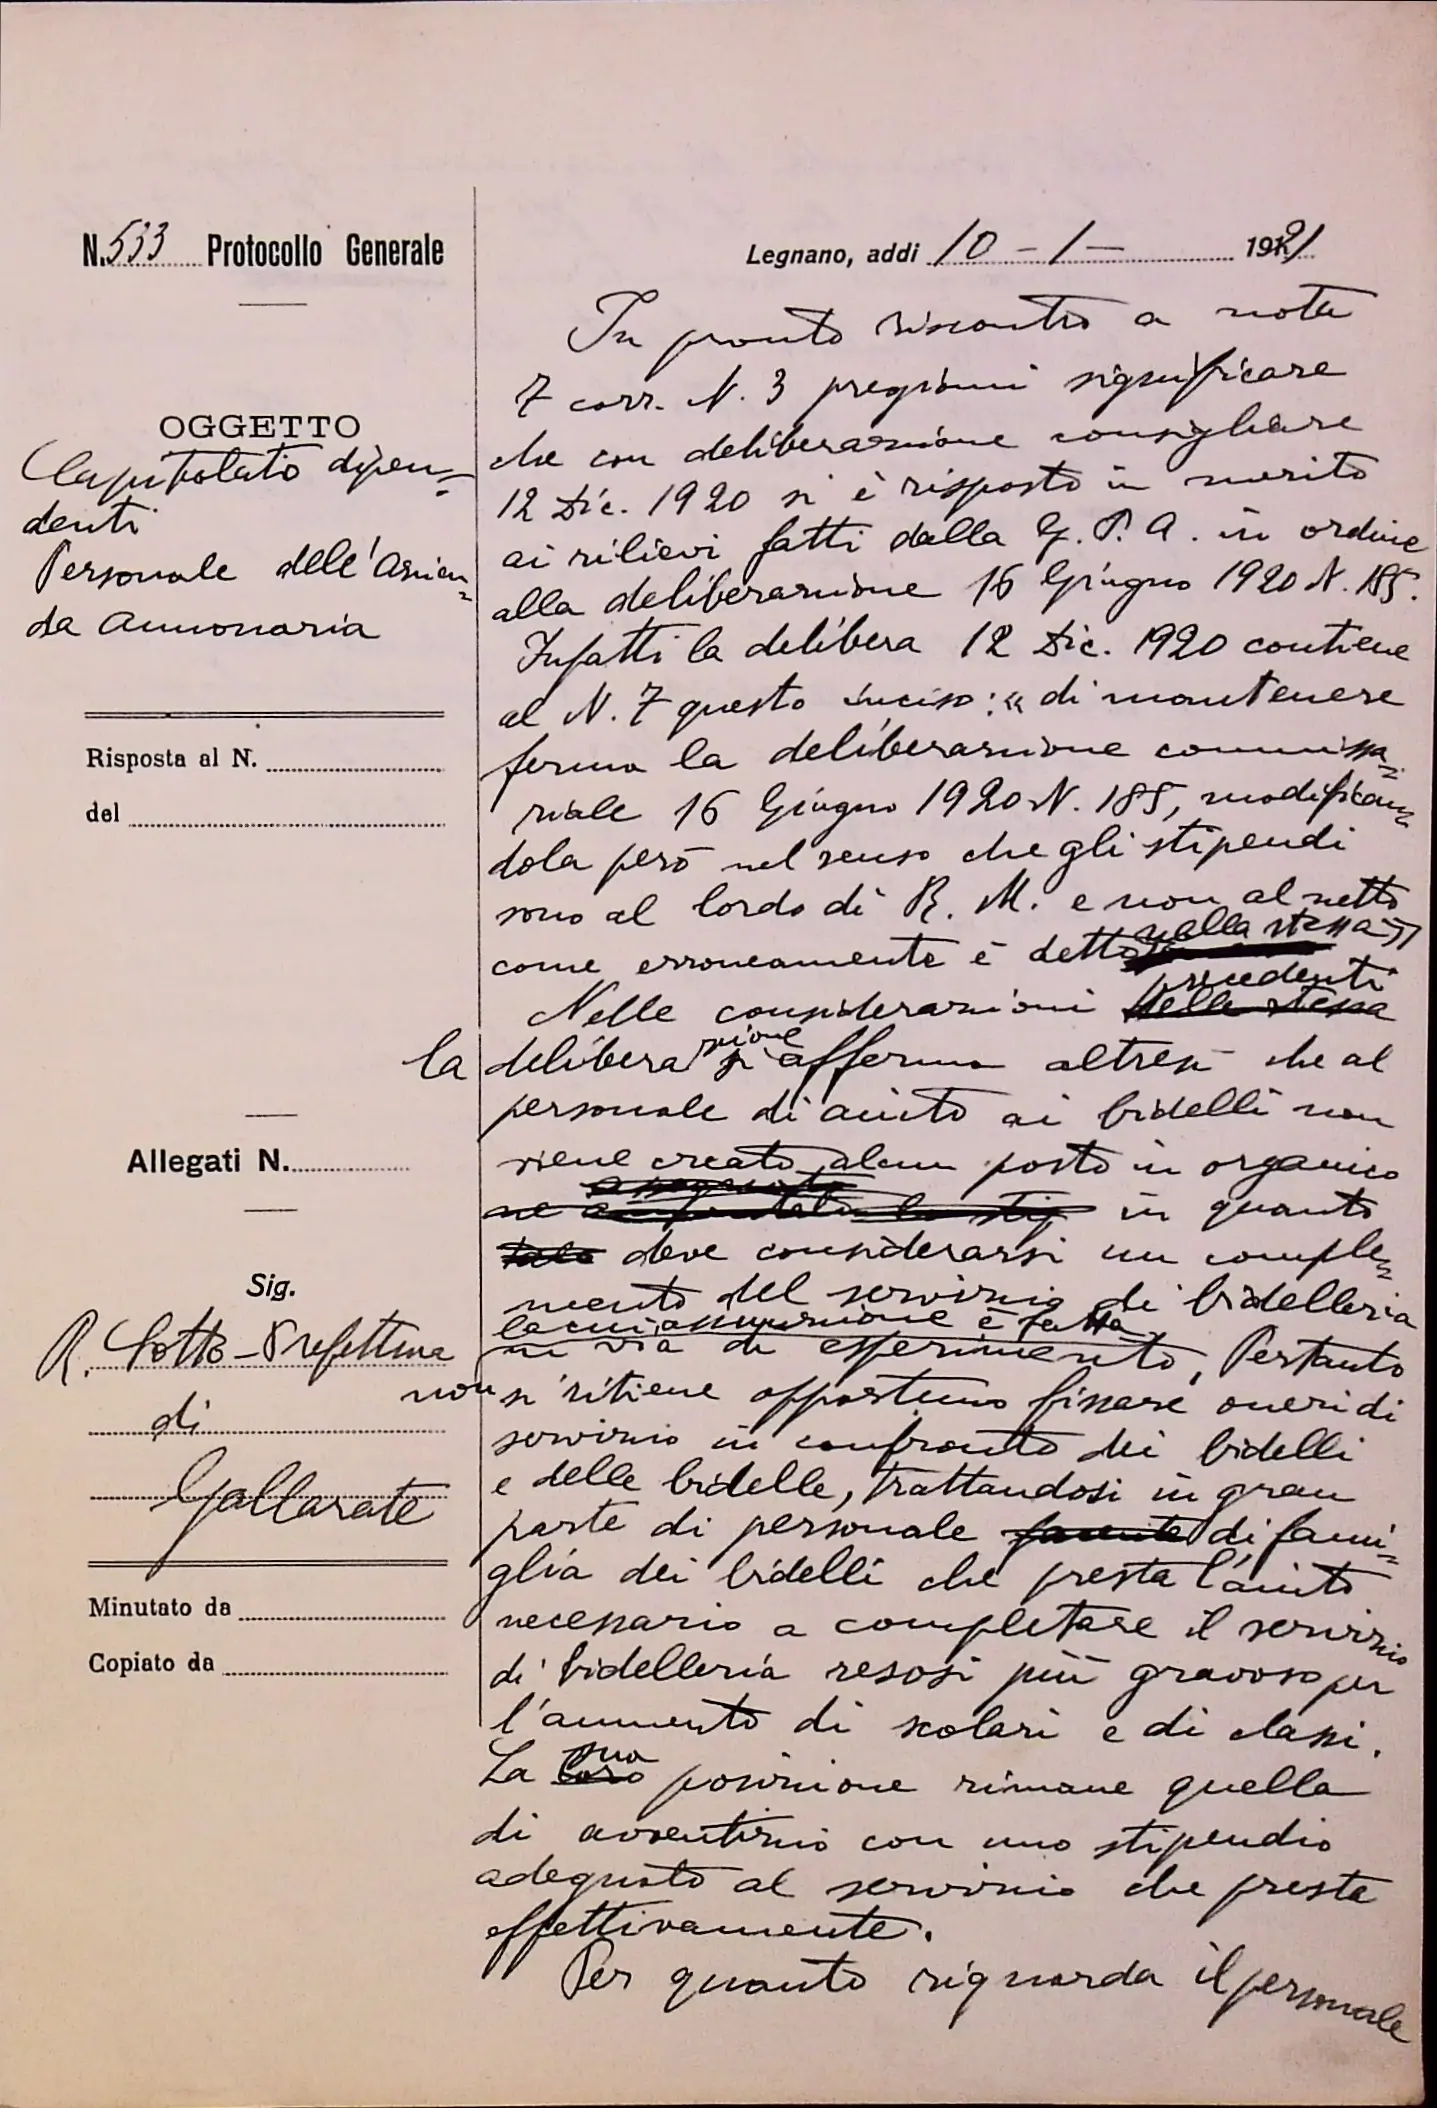 N. 533 Protocollo Generale
Legnano, addi 10 - 1 - 1921
OGGETTO
Capitolato dipen=
denti
Personale dell'Azien=
da Annonaria
Risposta al N.
del
Allegati N.
Sig.
R. Sotto-Prefettura
di
Gallarate
Minutato da
Copiato da
In pronto riscontro a nota
7 corr. N. 3 pregiomi significare
che con deliberazione consigliare
12 Dic. 1920 si è risposto in merito
ai rilievi fatti dalla G. P. A. in ordine
alla deliberazione 16 Giugno 1920 N. 185.
Infatti la delibera 12 Dic. 1920 contiene
al N. 7 questo inciso: « di mantenere
ferma la deliberazione commissa=
riale 16 Giugno 1920 N. 185, modifican=
dola però nel senso che gli stipendi
sono al lordo di R. M. e non al netto
come erroneamente è detto nella stessa »
Nelle considerazioni precedenti della stessa
la deliberazione si afferma altresì che al
personale di aiuto ai bidelli non
viene creato alcun posto in organico
assegnato
ne in quanto
tale deve considerarsi un comple=
mento del servizio di bidelleria
la cui assunzione è fatta
in via di esperimento. Pertanto
non si ritiene opportuno fissare oneri di
servizio in confronto dei bidelli
e delle bidelle, trattandosi in gran
parte di personale facente di fami=
glia dei bidelli che presta l'aiuto
necessario a completare il servizio
di bidelleria resosi più gravoso per
l'aumento di scolari e di classi.
La loro sua posizione rimane quella
di avventizio con uno stipendio
adeguato al servizio che presta
effettivamente.
Per quanto riguarda il personale